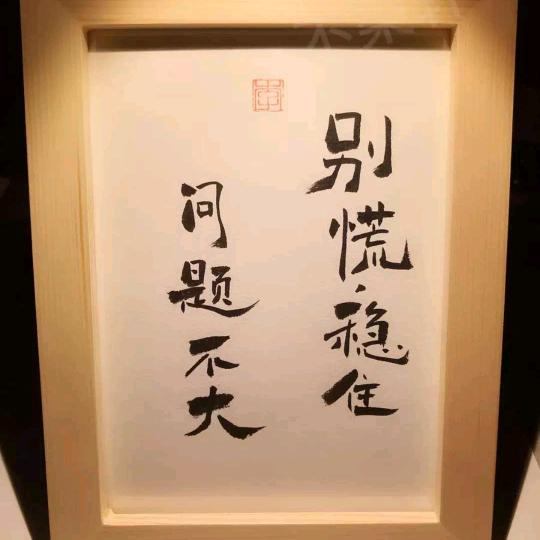 别慌,稳住
问题不大